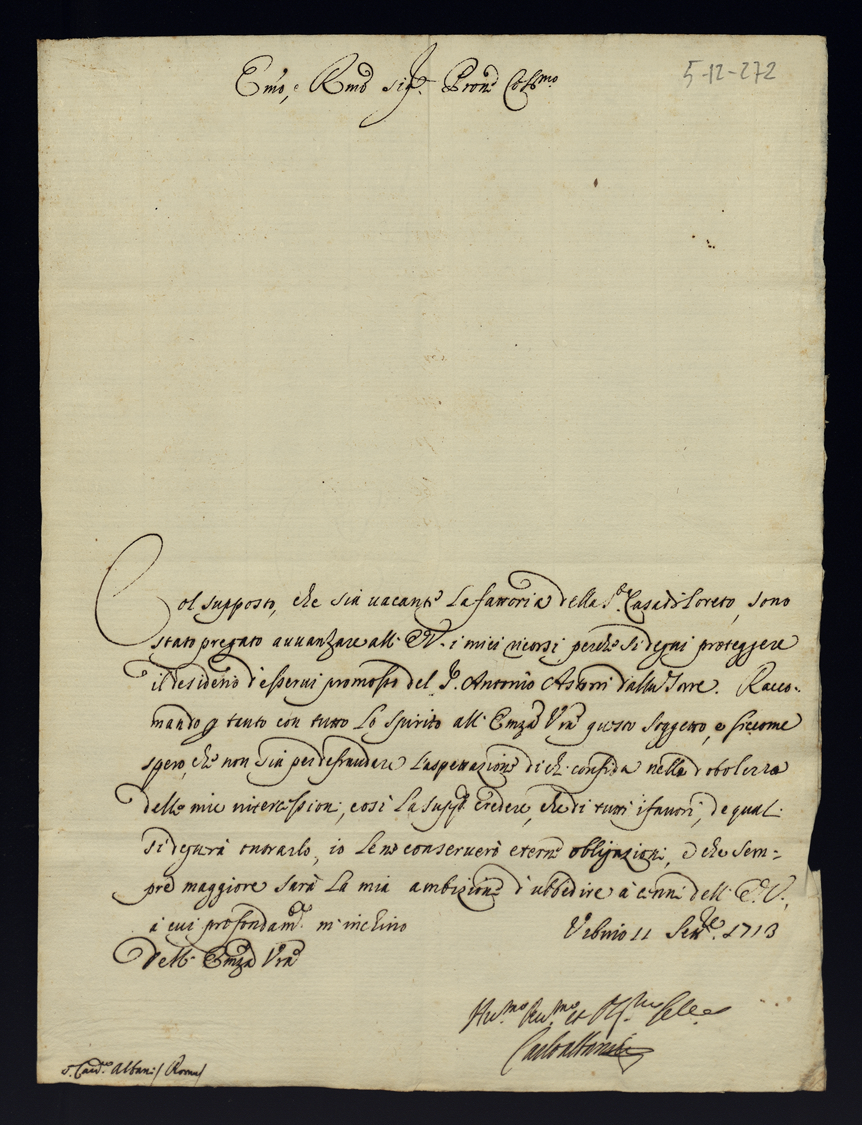 5-12-272
Emo, e Rmo Sigr. Pron Colmo
Col supposto, che sia vacante la fattoria della S. Casa di Loreto, sono
stato pregato avvanzare all' E.V. i miei ricorsi, perche si degni proteggere
il desiderio d'esservi promosso del Sr. Antonio Astorri dalla Torre. Racco-
mando p tanto con tutto lo spirito all' Emza Vra questo soggetto, e siccome
spero, che non sia per defraudare l'aspettazione di chi confida nella debolezza
delle mie intercessioni, così la suppco credere, che di tutti i favori, de quali
si degnerà onorarlo, io le ne conserverò eterne obligazioni, e che sem-
pre maggiore sarà la mia ambizione d'ubbedire à cenni dell' E.V.,
à cui profondamte m'inchino Urbino 11 Sette. 1713
Dell' Emza Vra
Humo Devmo et
Carlo
S. Card. Albani / Roma /